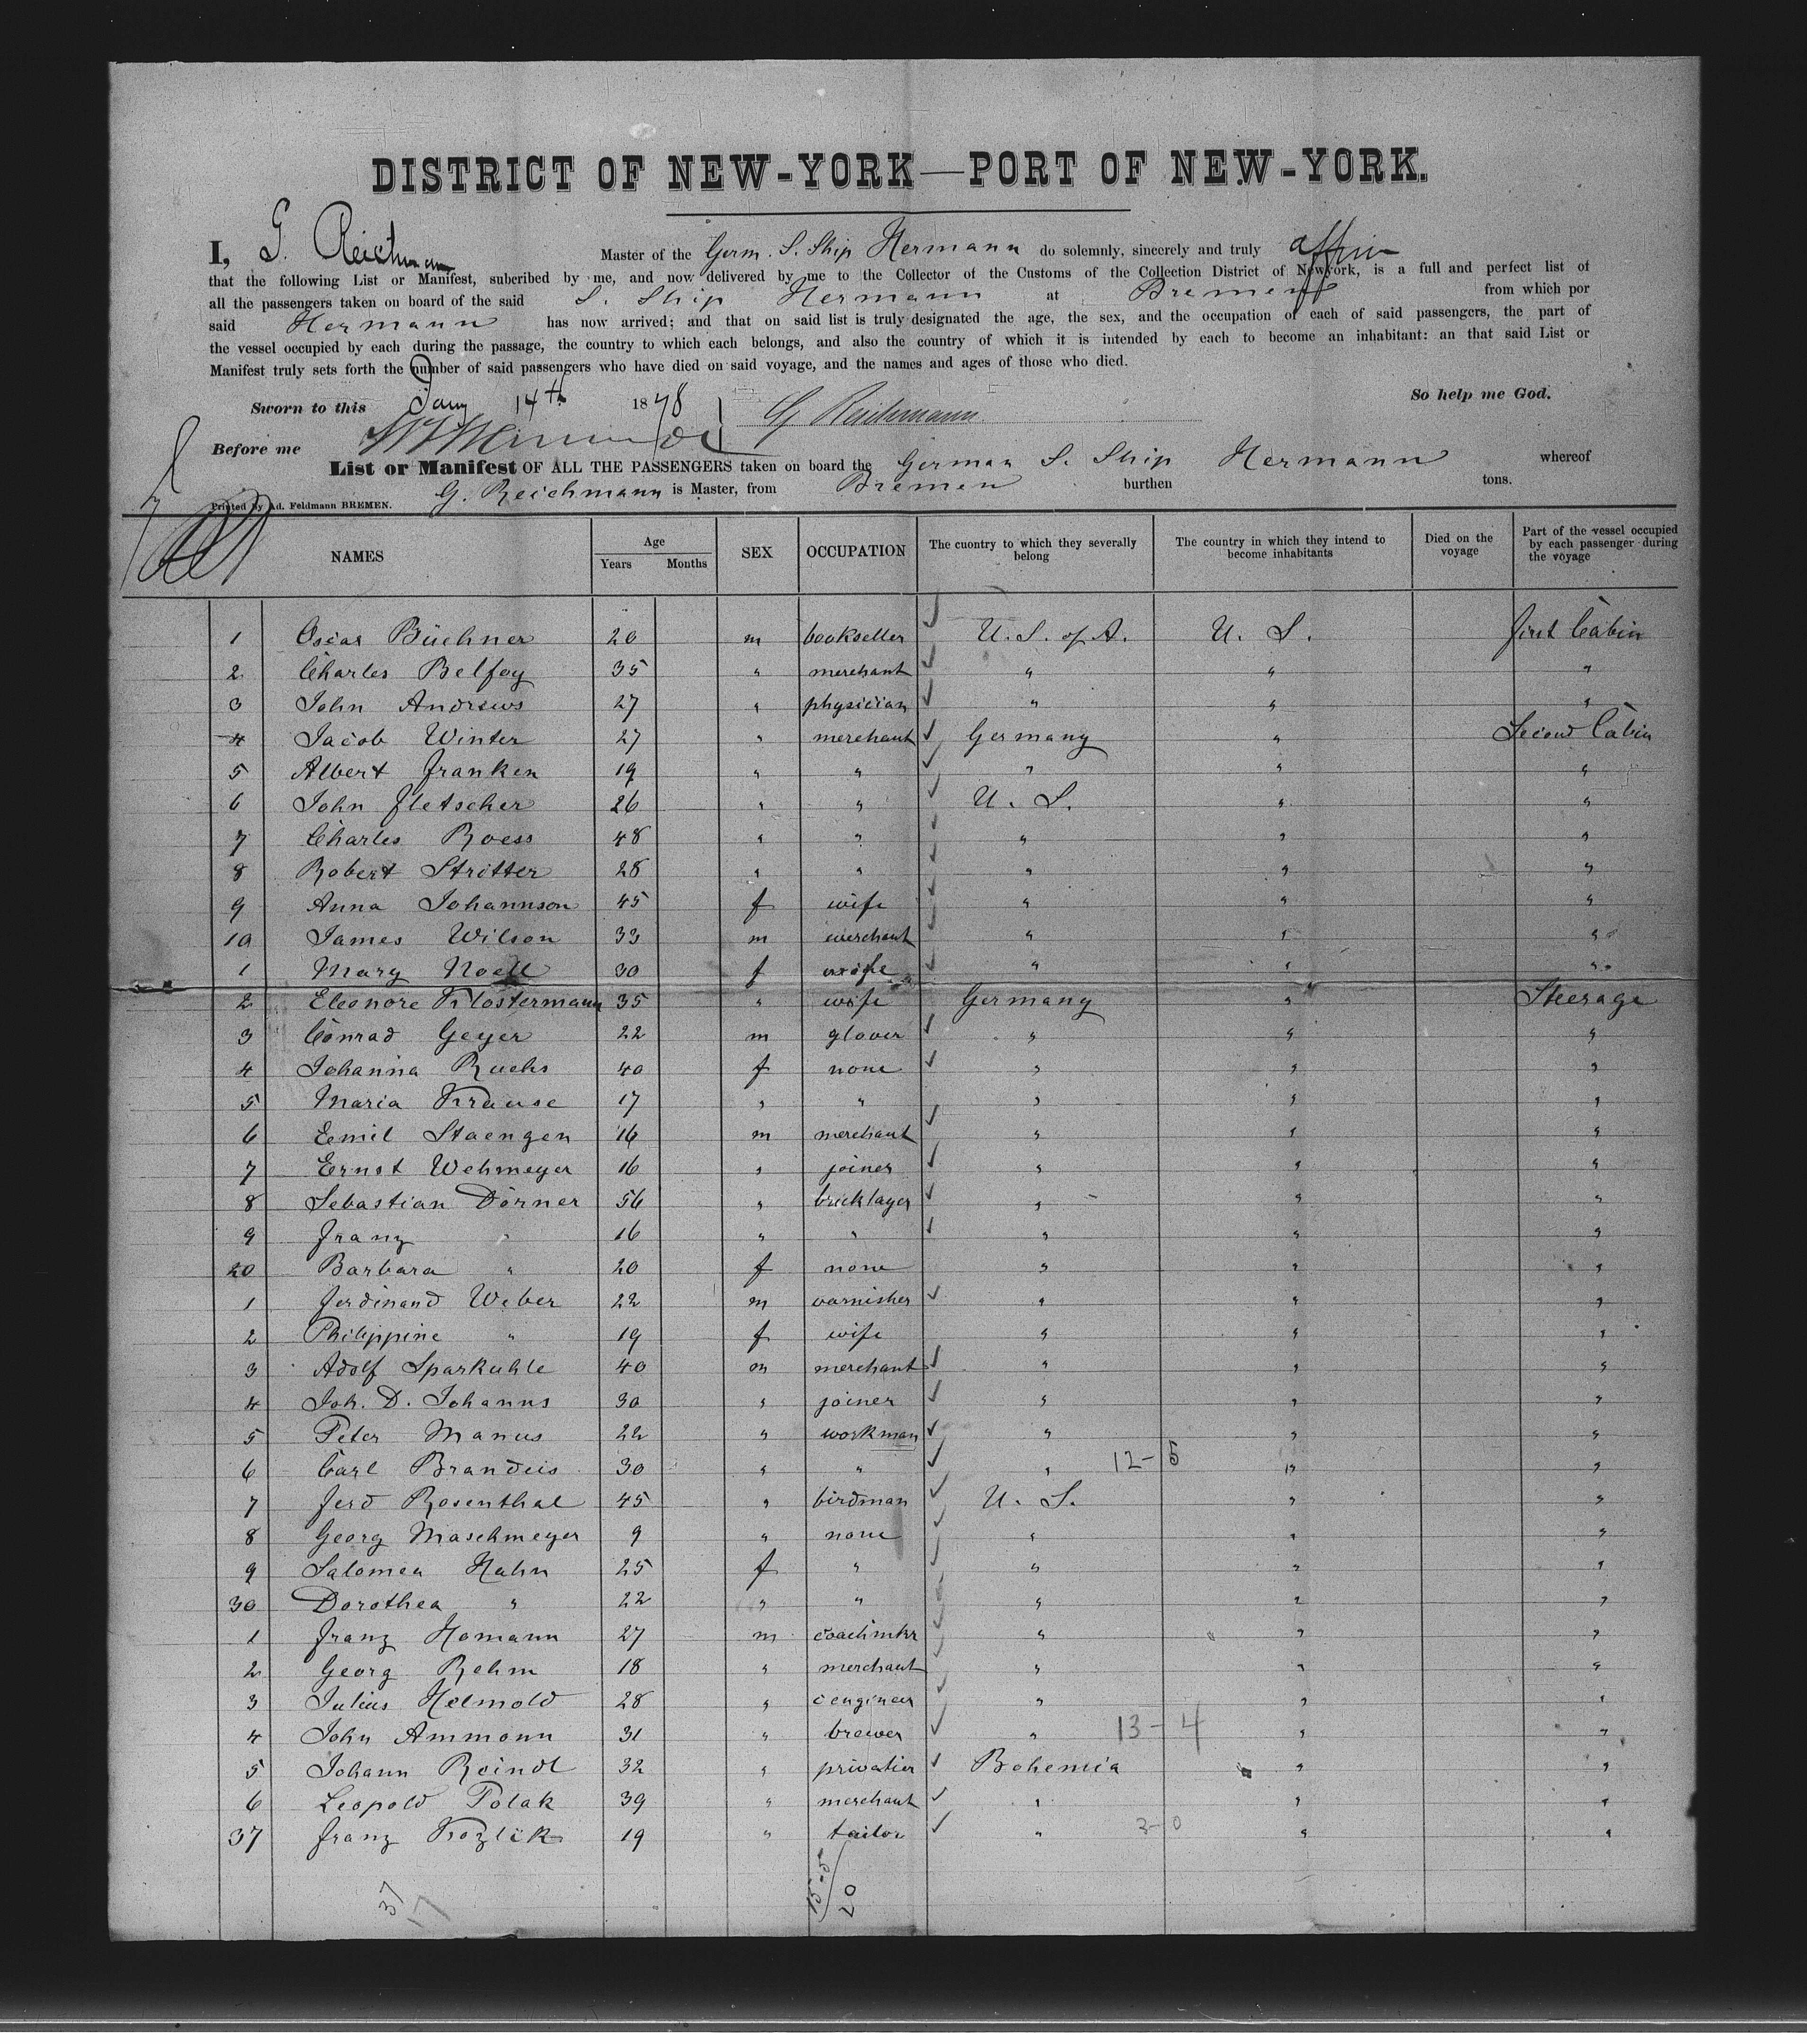 DISTRICT OF NEW-YORK—PORT OF NEW-YORK.
I, G. Reichmann Master of the Germ. S. Ship Hermann do solemnly, sincerely and truly affirm
that the following List or Manifest, subcribed by me, and now delivered by me to the Collector of the Customs of the Collection District of Newyork, is a full and perfect list of
all the passengers taken on board of the said S. Ship Hermann at Bremen from which por
said Hermann has now arrived; and that on said list is truly designated the age, the sex, and the occupation of each of said passengers, the part of
the vessel occupied by each during the passage, the country to which each belongs, and also the country of which it is intended by each to become an inhabitant: an that said List or
Manifest truly sets forth the number of said passengers who have died on said voyage, and the names and ages of those who died.
So help me God.
Sworn to this Jany 14th 1878 G Reichmann
Before me
List or Manifest OF ALL THE PASSENGERS taken on board the German S. Ship Hermann whereof
G. Reichmann is Master, from Bremen burthen tons.
Printed by Ad. Feldmann BREMEN.
NAMES Age Years Months SEX OCCUPATION The cuontry to which they severally belong The country in which they intend to become inhabitants Died on the voyage Part of the vessel occupied by each passenger during the voyage
1 Oscar Büchner 20 m bookseller U. S. of A. U. S. first Cabin
2 Charles Belfoy 35 " merchant " " "
3 John Andrews 27 " physician " " "
4 Jacob Winter 27 " merchant Germany " Second Cabin
5 Albert Franken 19 " " " " "
6 John Fletscher 26 " " U. S. " "
7 Charles Roess 48 " " " " "
8 Robert Stritter 28 " " " " "
9 Anna Johannson 45 f wife " " "
10 James Wilson 33 m merchant " " "
1 Mary Noell 30 f wife " " "
2 Eleonore Klostermann 35 " wife Germany " Steerage
3 Conrad Geyer 22 m glover " " "
4 Johanna Ruchs 40 f none " " "
5 Maria Krause 17 " " " " "
6 Eemil Staengen 16 m merchant " " "
7 Ernst Wehmeyer 16 " joiner " " "
8 Sebastian Dörner 56 " bricklayer " " "
9 Franz " 16 " " " " "
20 Barbara " 20 f none " " "
1 Ferdinand Weber 22 m varnisher " " "
2 Philippine " 19 f wife " " "
3 Adolf Sparkuhle 40 m merchant " " "
4 Joh. D. Johanns 30 " joiner " " "
5 Peter Manus 22 " workman " " "
6 Carl Brandeis 30 " " " 12-5 " "
7 Ferd Rosenthal 45 " birdman U. S. " "
8 Georg Maschmeyer 9 " none " " "
9 Salomea Hahn 25 f " " " "
30 Dorothea " 22 " " " " "
1 Franz Homann 27 m coachmkr " " "
2 Georg Rehm 18 " merchant " " "
3 Julius Helmold 28 " engineer " " "
4 John Ammann 31 " brewer " 13-4 " "
5 Johann Reindl 32 " privatier Bohemia " "
6 Leopold Polak 39 " merchant " " "
37 Franz Kozlik 19 " tailor " 3-0 " "
37
17
15-5
20